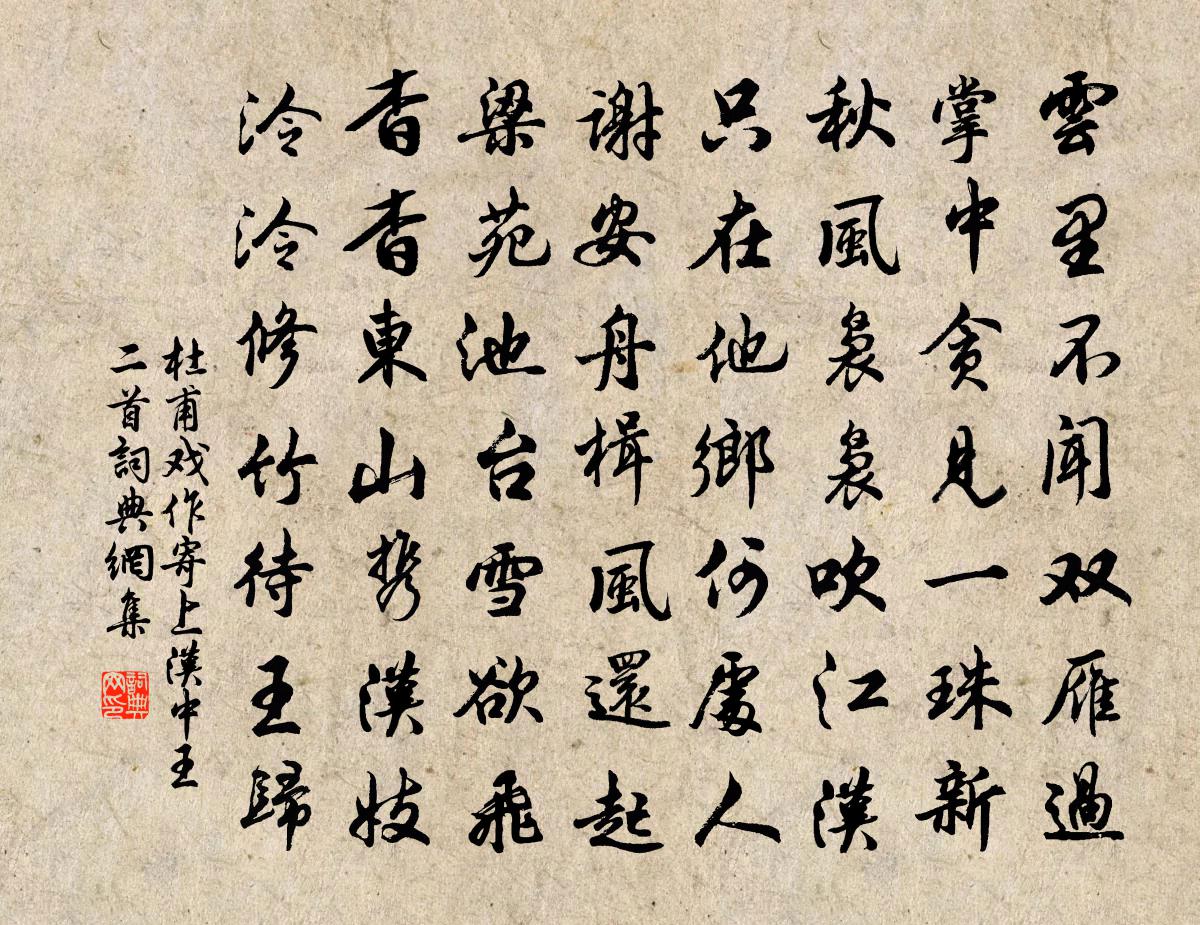 雲里不闻双雁過
掌中贪見一珠新
秋風袅袅吹江漢
只在他鄉何處人
謝安舟楫風還起
梁苑池台雪欲飛
杳杳東山携漢妓
泠泠修竹待王歸
杜甫戏作寄上漢中王
二首詞典網集
詞典
网印